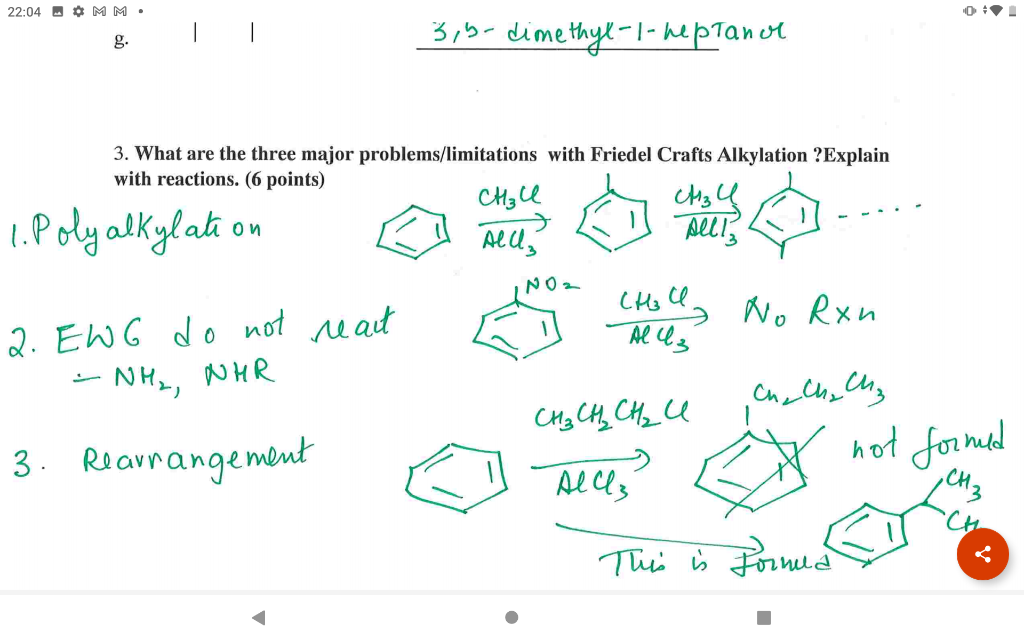 22:04
g.
3,5- dimethyl-1-heptanol
3. What are the three major problems/limitations with Friedel Crafts Alkylation ?Explain
with reactions. (6 points)
1. Polyalkylation
CH3Cl
AlCl3
CH3Cl
AlCl3
-----
2. EWG do not react
- NH2, NHR
NO2
CH3Cl
AlCl3
No Rxn
3. Rearrangement
CH3CH2CH2Cl
AlCl3
CH2CH2CH3
not formed
This is formed
CH3